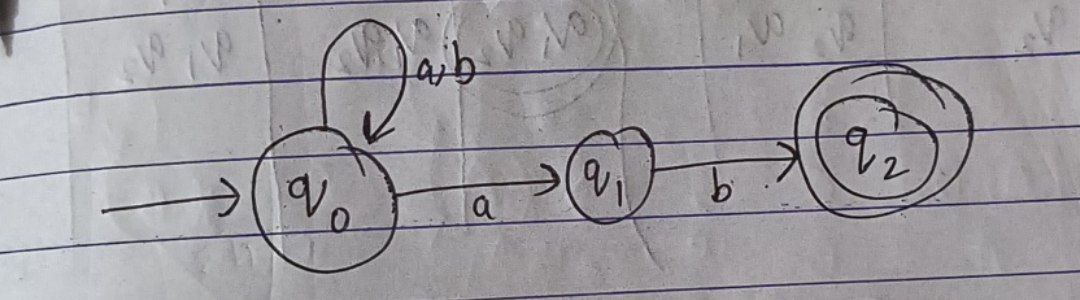 a,b
q0 a q1 b q2